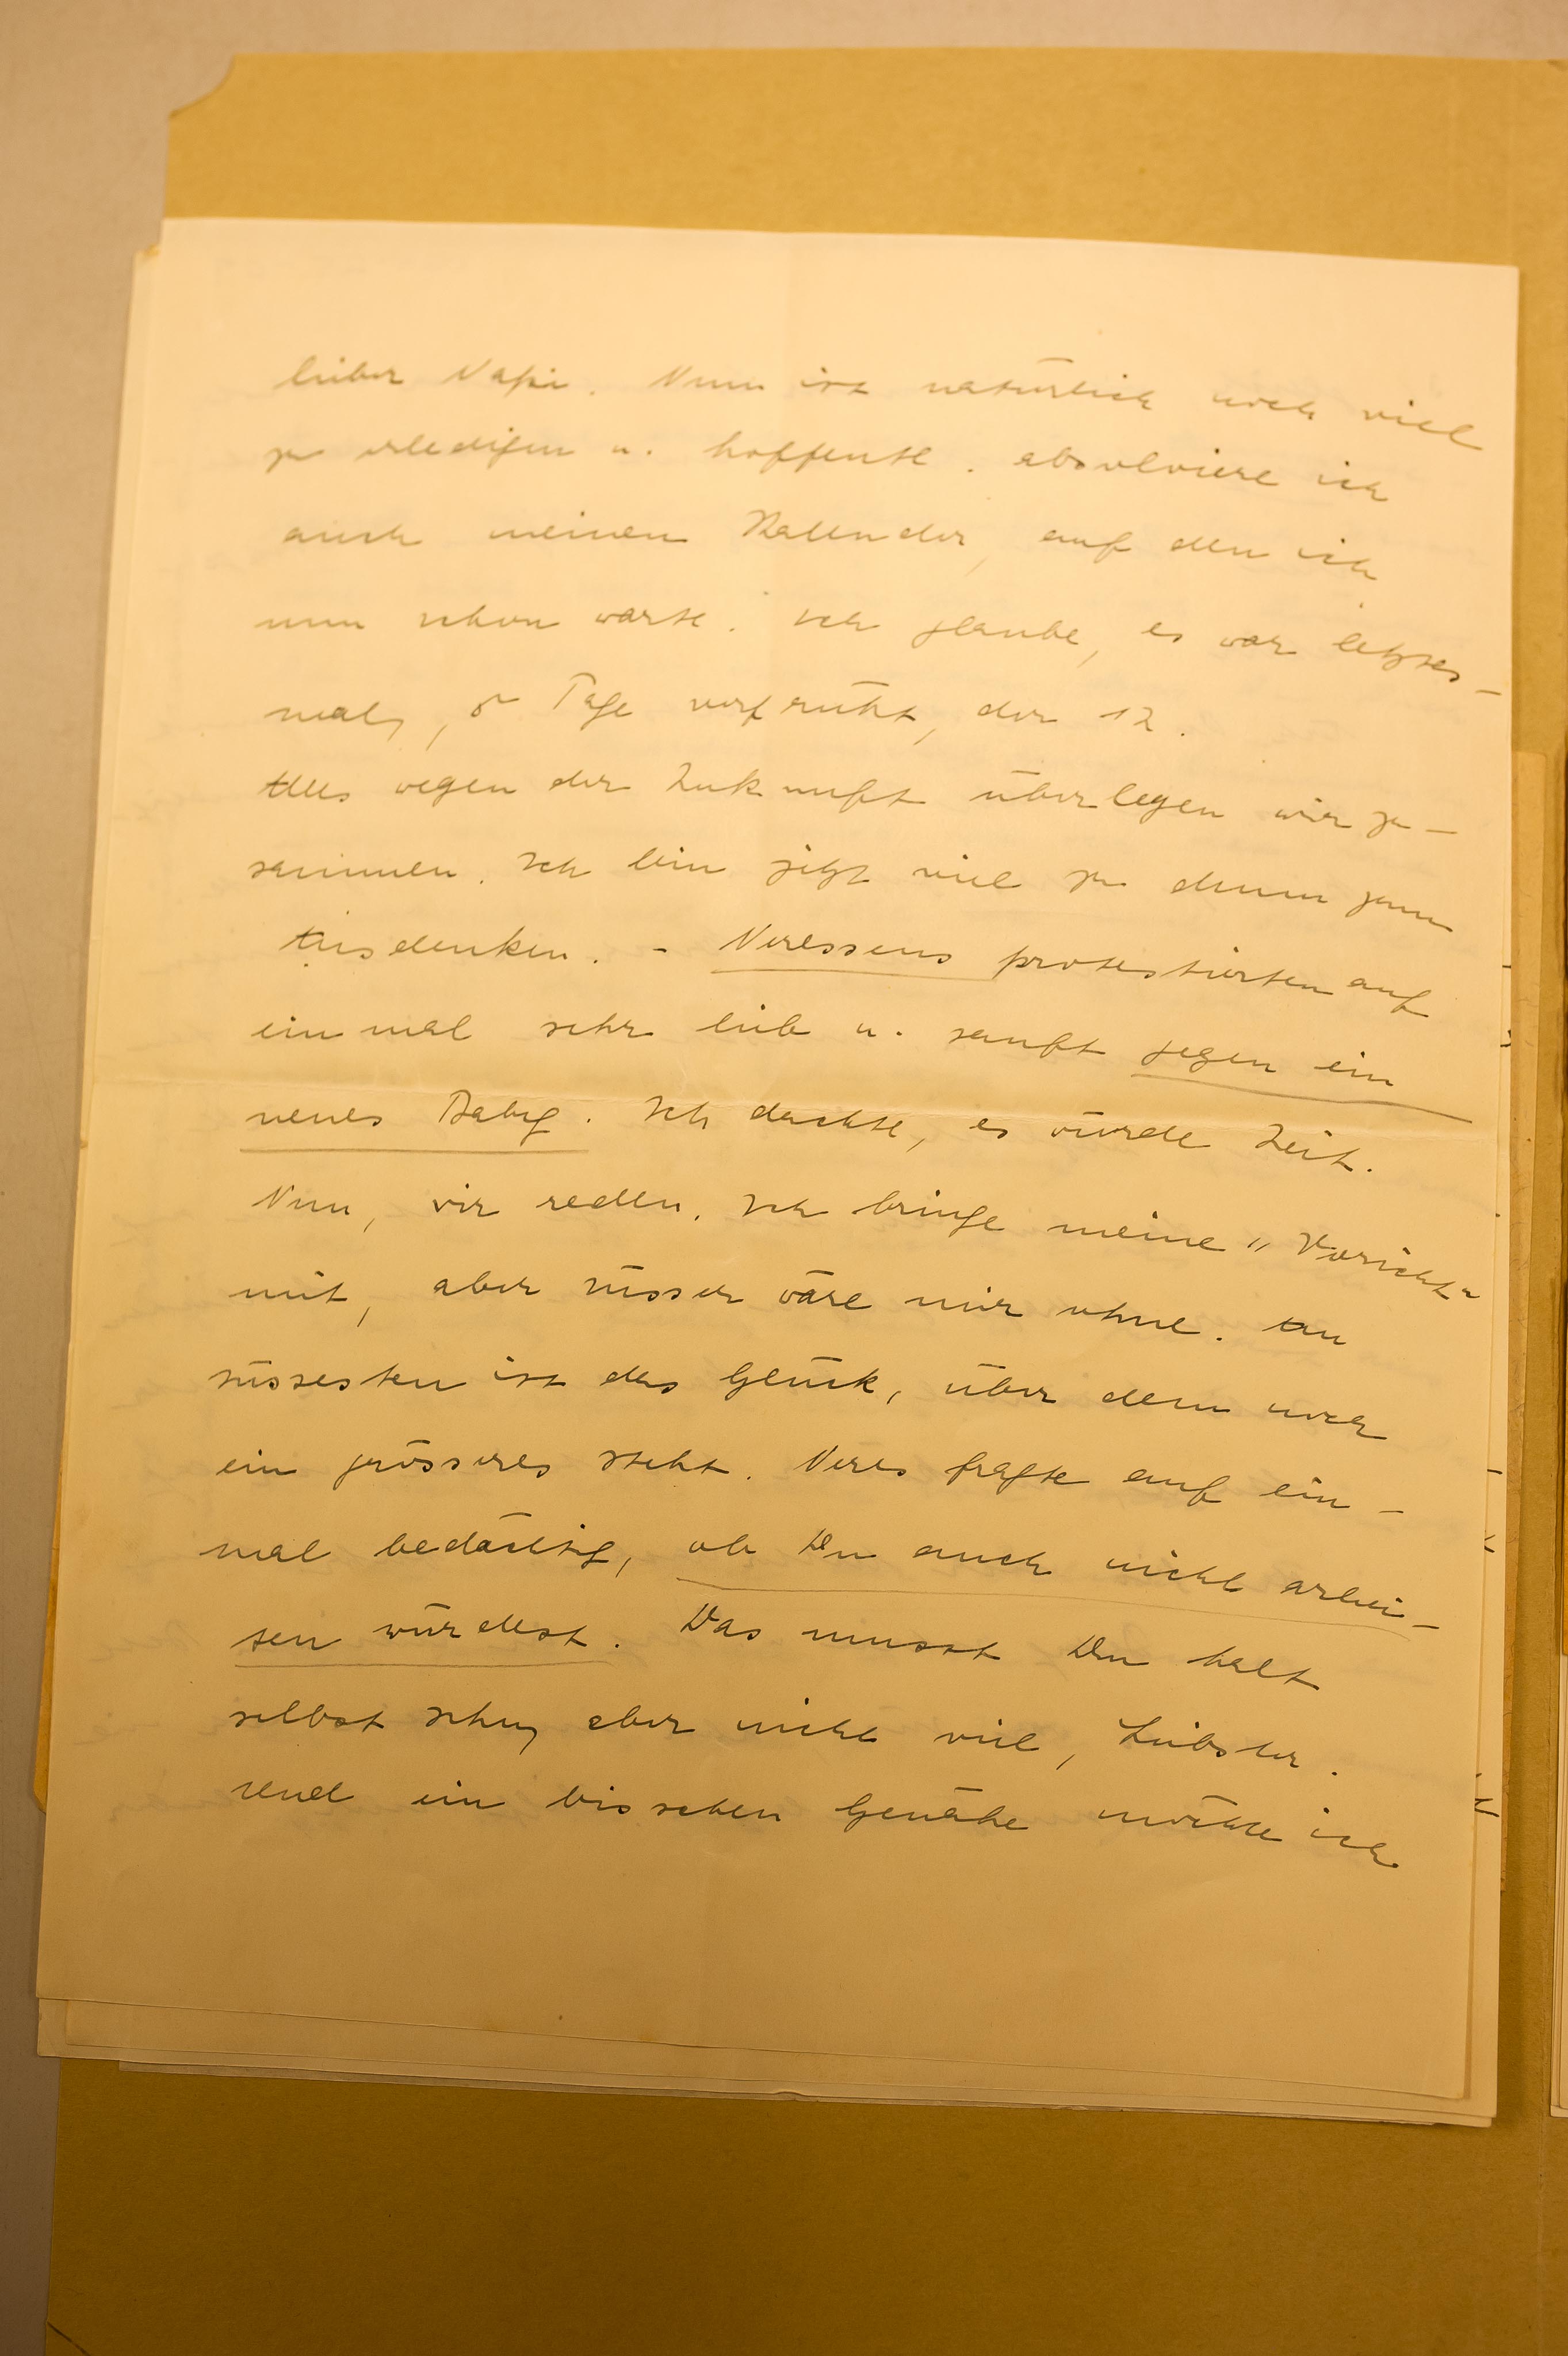 lieber Napi. Nun ist natürlich noch viel
zu erledigen u. hoffentl. absolviere ich
auch meinen Kalender, auf den ich
nun schon warte. Ich glaube, es war letztes-
mal, 5 Tage verfrüht, der 12.
Alles wegen der Zukunft überlegen wir zu-
sammen. Ich bin jetzt viel zu dumm zum
Ausdenken. - Veressens protestierten auf
einmal sehr lieb u. sanft gegen ein
neues Baby. Ich dachte, es würde Zeit.
Nun, wir reden. Ich bringe meine "Vorsicht"
mit, aber süsser wäre mir ohne. Am
süssesten ist das Glück, über dem noch
ein grösseres steht. Veres fragte auf ein-
mal bedächtig, ob Du auch nicht arbei-
ten würdest. Das musst Du halt
selbst sehn, aber nicht viel, Liebster.
Und ein bisschen Genähe möchte ich